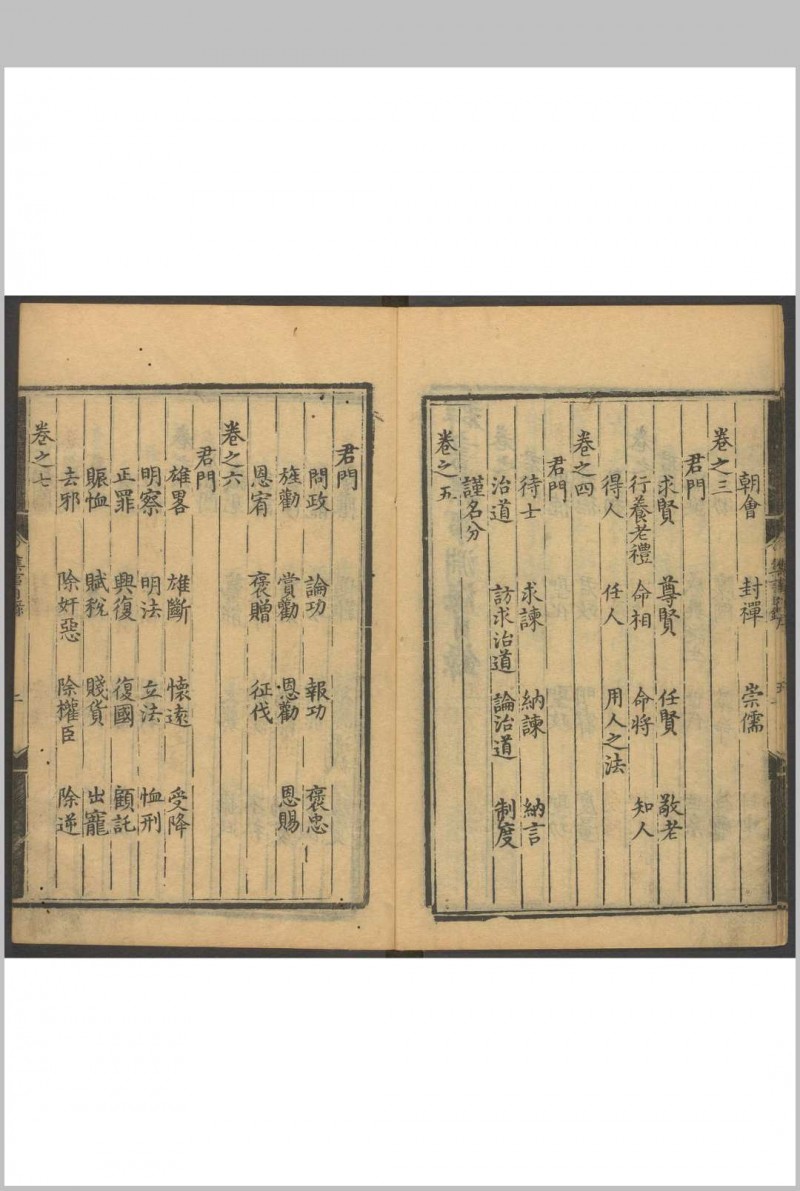 朝會　封禪　崇儒
卷之三
君門
求賢　尊賢　任賢　敬老
行養老禮　命相　命將　知人
得人　任人　用人之法
卷之四
君門
待士　求諫　納諫　納言
治道　訪求治道　論治道　制度
謹名分
卷之五
君門
問政　論功　報功　褒忠
旌勸　賞勸　恩勸　恩賜
恩宥　褒贈　征伐
卷之六
君門
雄畧　雄斷　懷遠　受降
明察　明法　立法　恤刑
正罪　興復　復國　顧託
賑恤　賦稅　賤貨　出寵
去邪　除奸惡　除權臣　除逆
卷之七